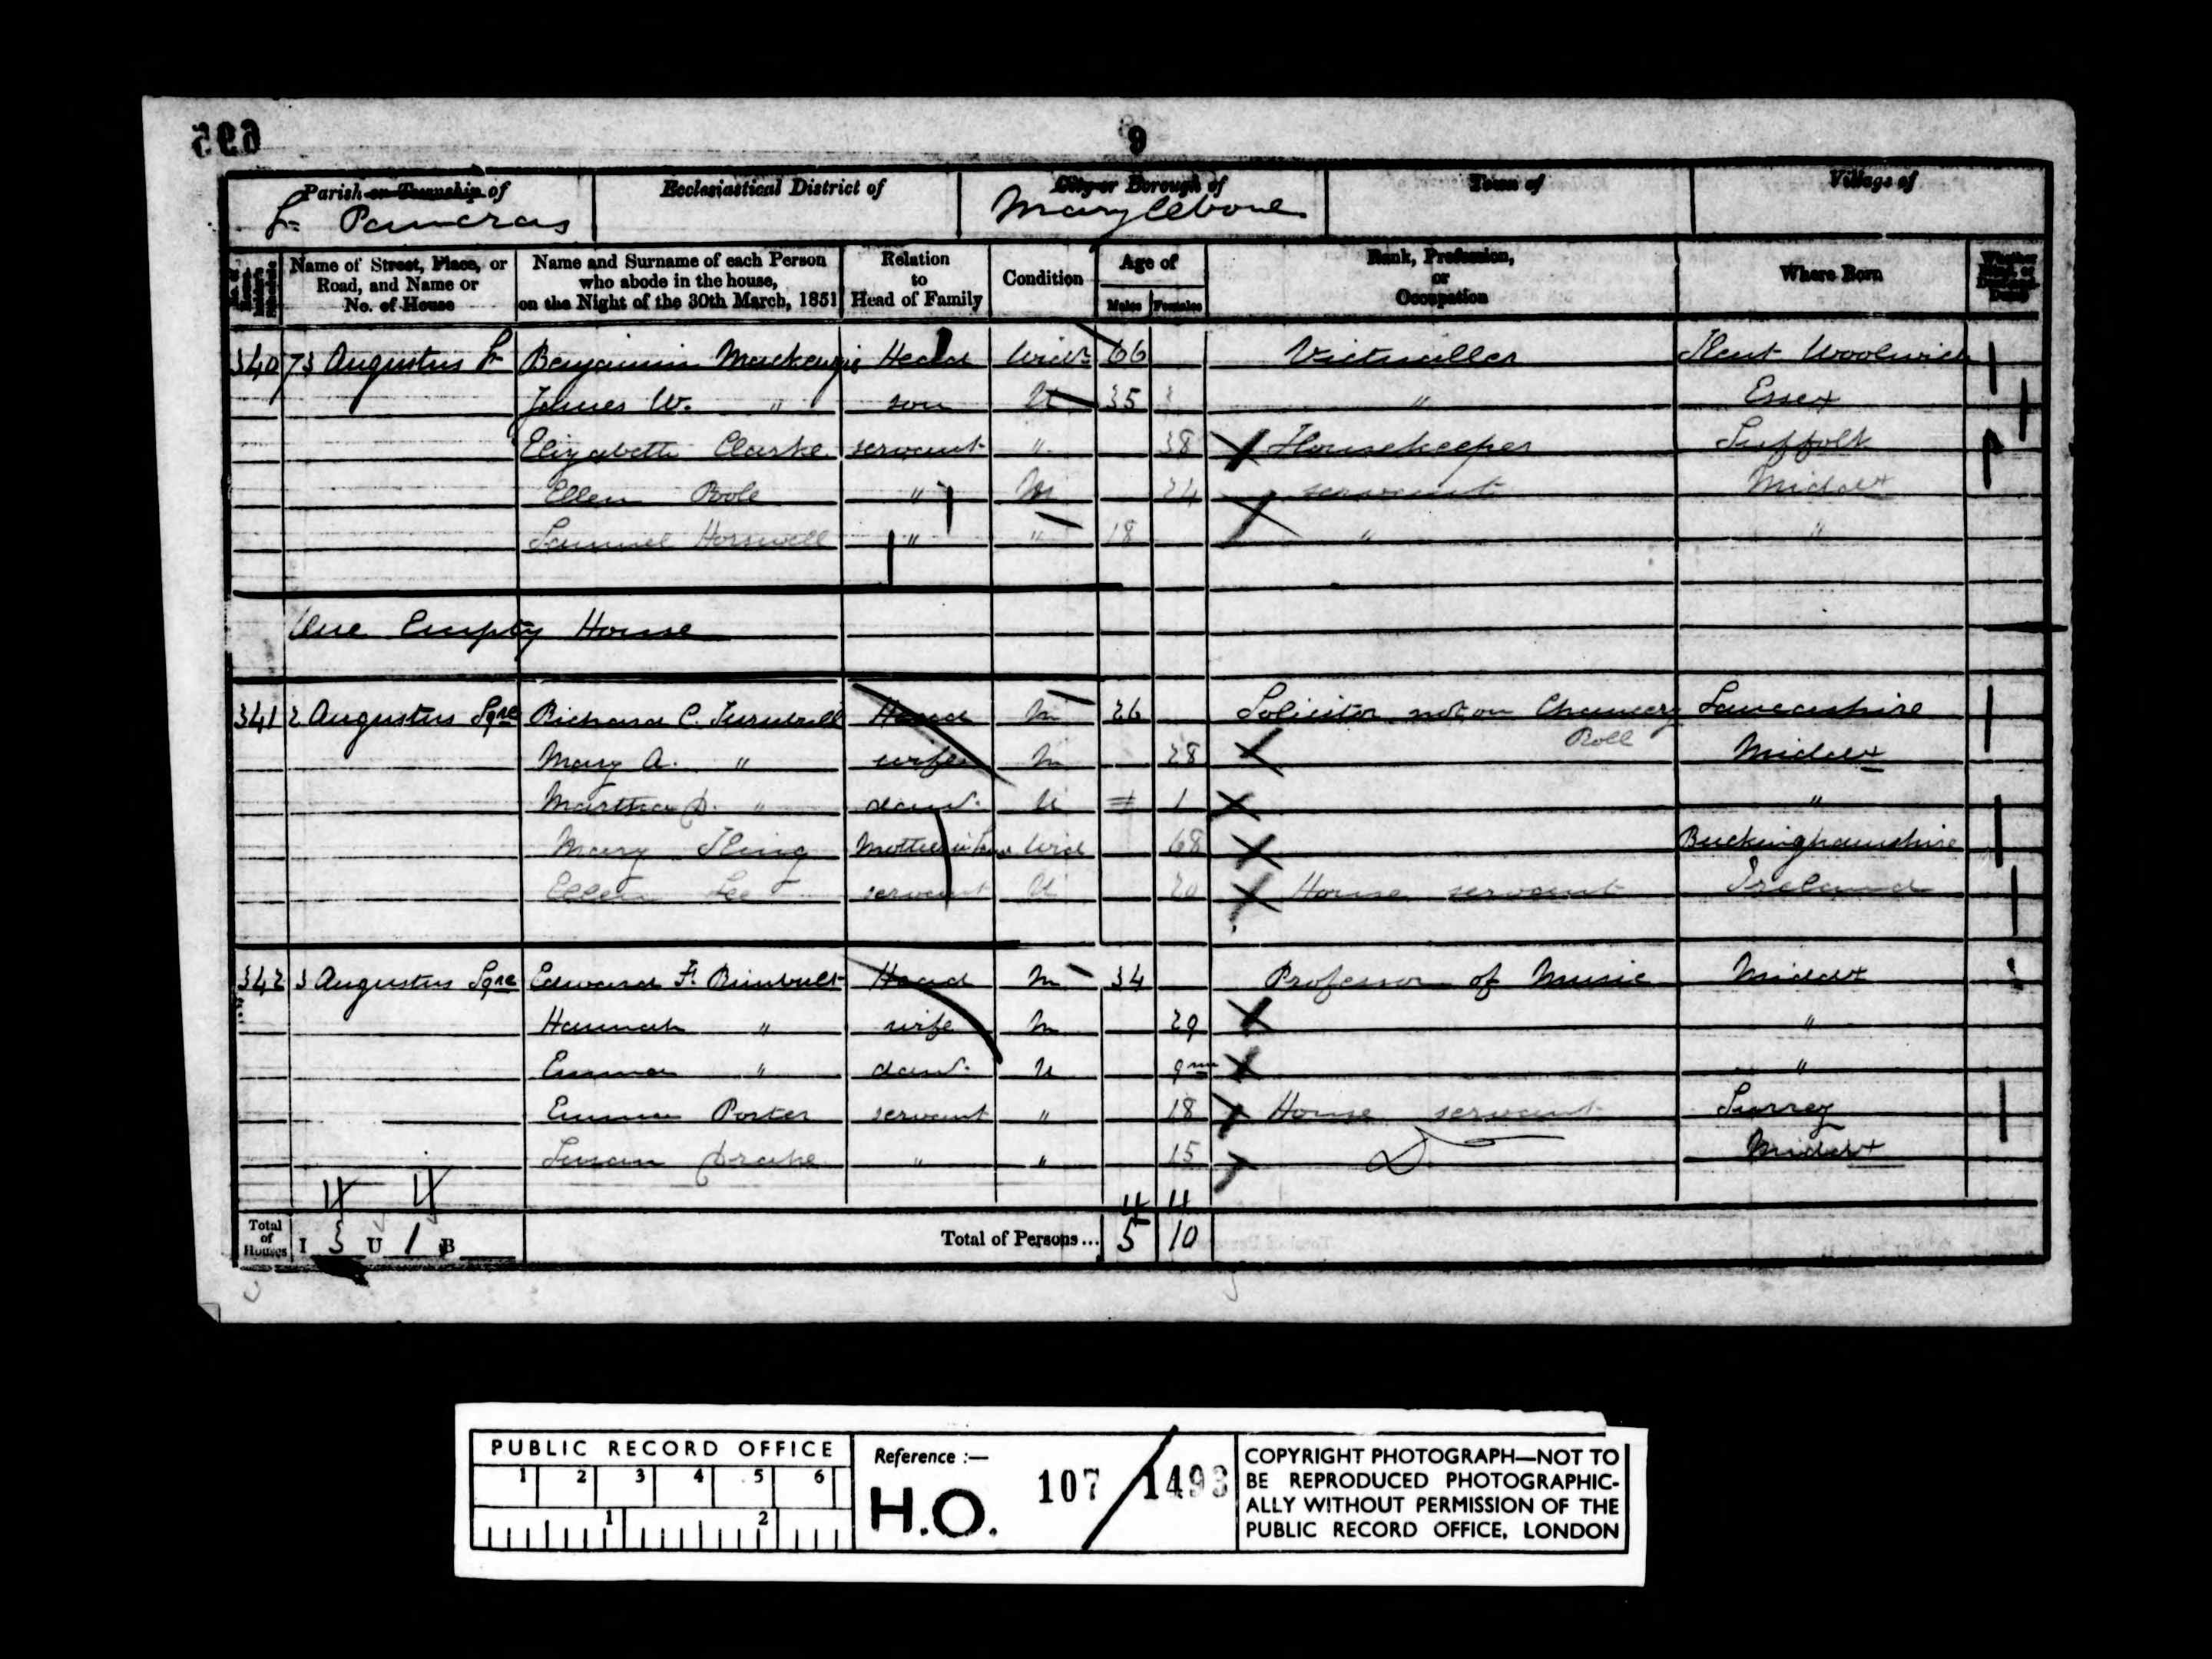 695
9
Parish or Township of
St Pancras
Ecclesiastical District of
City or Borough of
Marylebone
Town of
Village of
Name of Street, Place, or Road, and Name or No. of House
Name and Surname of each Person who abode in the house, on the Night of the 30th March, 1851
Relation to Head of Family
Condition
Age of
Males Females
Rank, Profession, or Occupation
Where Born
340 73 Augustus St Benjamin Mackenzie Head Widr 66 Victualler Kent Woolwich
James W. " son U 35 " Essex
Elizabeth Clarke servant " 38 Housekeeper Suffolk
Ellen Poole " M 24 servant Middx
Samuel Horswell " " 18 " "
One Empty House
341 2 Augustus Sqre Richard C. Turnbull Head M 26 Solicitor not on Chancery Roll Lancashire
Mary A. " wife M 28 Middx
Martha D. " daur. U 1 "
Mary King Mother in Law Wid 68 Buckinghamshire
Ellen Lee servant U 20 House servant Ireland
342 3 Augustus Sqre Edward F. Rimbault Head M 34 Professor of Music Middx
Hannah " wife M 29 "
Emma " daur. U 9m "
Emma Porter servant " 18 House servant Surrey
Susan Drake " " 15 Do Middx
Total of Houses I 3 U 1 B
Total of Persons... 5 10
PUBLIC RECORD OFFICE
1 2 3 4 5 6
1 2
Reference :—
H.O. 107 / 1493
COPYRIGHT PHOTOGRAPH—NOT TO
BE REPRODUCED PHOTOGRAPHIC-
ALLY WITHOUT PERMISSION OF THE
PUBLIC RECORD OFFICE, LONDON